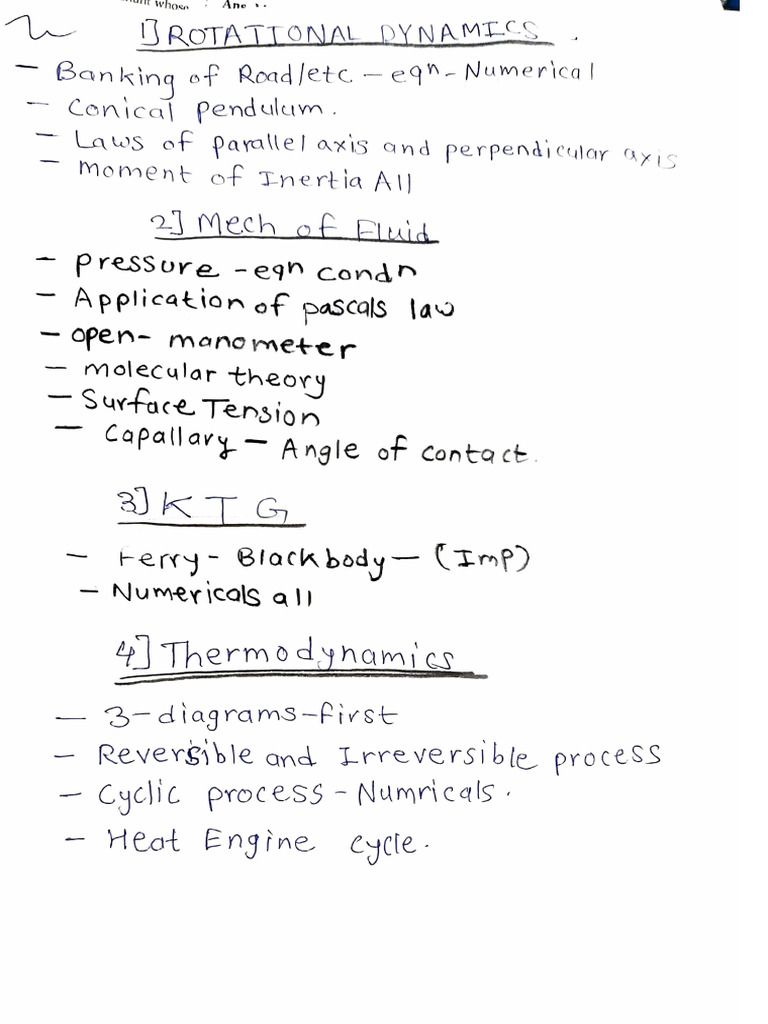 1] ROTATIONAL DYNAMICS .
- Banking of Road/etc - eqn - Numerical
- Conical pendulum.
- Laws of parallel axis and perpendicular axis
- moment of Inertia All
2] Mech of Fluid
- pressure - eqn condn
- Application of pascals law
- open - manometer
- molecular theory
- Surface Tension
- Capallary - Angle of contact.
3] K T G
- Ferry - Blackbody - (Imp)
- Numericals all
4] Thermodynamics
- 3 - diagrams - first
- Reversible and Irreversible process
- Cyclic process - Numricals.
- Heat Engine cycle.